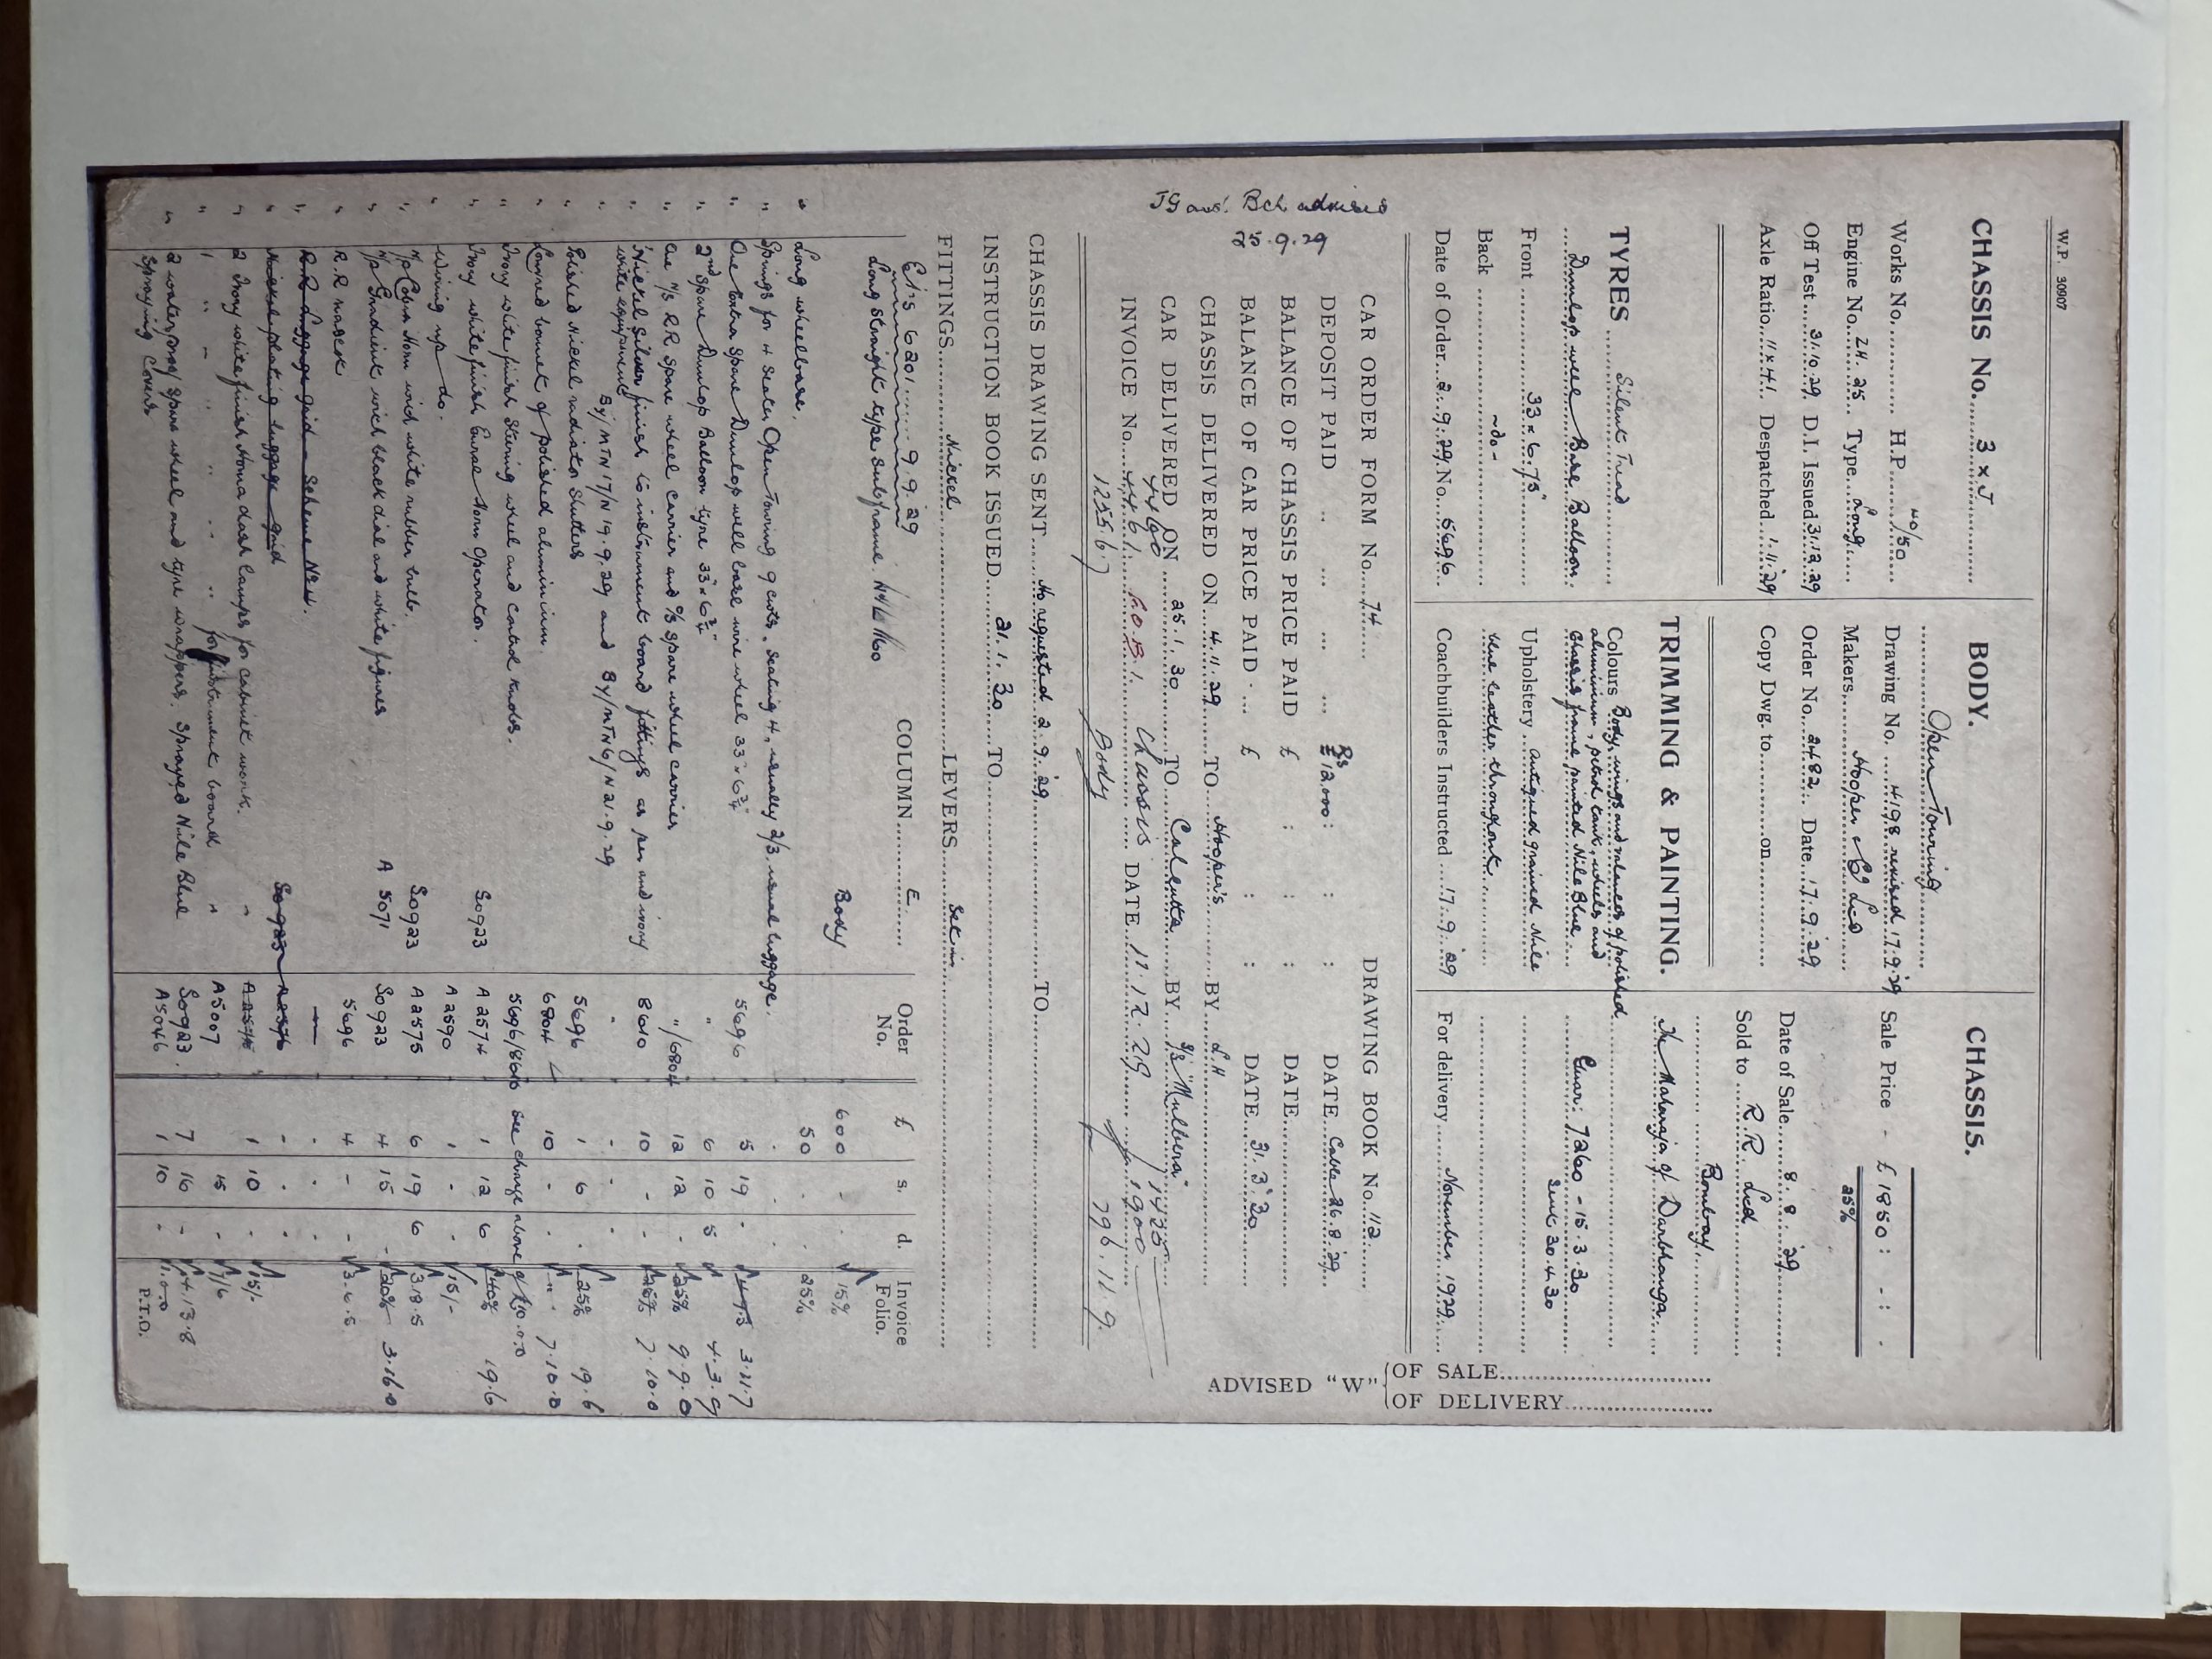 W.P. 30907
CHASSIS No. 3 x J
Works No. H.P. 40/50
Engine No. ZH. 25 Type. Long
Off Test. 31.10.29 D.I. Issued 31.12.29
Axle Ratio. 11 x 41. Despatched. 1.11.29
BODY.
Open Touring
Drawing No. 4198 revised 17.9.29
Makers. Hooper & Co Ltd
Order No. 2482 Date. 17.9.29
Copy Dwg. to on
CHASSIS.
Sale Price - £ 1850 : - : -
25%
Date of Sale 8.8.29
Sold to R.R. Ltd
Bombay
TYRES Silent Tread
Dunlop well Base Balloon
Front 33 x 6.75"
Back - do -
Date of Order. 2.9.29. No. 5696
TRIMMING & PAINTING.
Colours Body, wings and valances of polished
aluminium, petrol tank, wheels and
chassis frame painted Nile Blue
Upholstery Antiqued grained Nile
blue leather throughout.
Coachbuilders Instructed 17.9.29
The Maharaja of Darbhanga.
Guar: 7260 - 15.3.30
Sent 30.4.30
For delivery November 1929
Bch advised
25.9.29
CAR ORDER FORM No. 74 DRAWING BOOK No. 112
DEPOSIT PAID Rs £ 12,000 : : : DATE Cable 26.8.29
BALANCE OF CHASSIS PRICE PAID £ : : : DATE
BALANCE OF CAR PRICE PAID £ : : DATE 31.3.30
CHASSIS DELIVERED ON 4.11.29 TO Hooper's BY L.H
CAR DELIVERED ON 25.1.30 TO Calcutta BY S/S "Mulbera"
4460 1425
INVOICE No. 4461 60B1 Chassis DATE 11.12.29 1900
1255.6.7 Body 796.11.9.
ADVISED "W" { OF SALE
OF DELIVERY
CHASSIS DRAWING SENT No requested 2.9.29 TO
INSTRUCTION BOOK ISSUED 21.1.30 TO
FITTINGS Nickel LEVERS Set in
COLUMN E Order No. £ s. d. Invoice Folio.
6201 9.9.29
Long straight type Subframe N416/1160
Body 600 - - 15%
" Long wheelbase. 50 - - 25%
" Springs for 4 Seater Open Touring 9 cwts. Seating 4, usually 2/3. usual luggage.
" One Extra Spare Dunlop well base wire wheel 33" x 6¾" 5696 5 19 - 3.11.7
" 2nd Spare Dunlop Balloon tyre 33" x 6¾" " 6 10 5 4.3.9
" One N/S RR Spare wheel carrier and O/S spare wheel carrier "/6804 12 12 - 25% 9.9.0
" Nickel Silver finish to instrument board fittings as per and ivory 8610 10 - - 25% 7.10.0
white equipment
" By/MTN17/N19.9.29 and By/MTN6/N21.9.29 "
" Polished Nickel radiator Shutters 5696 1 6 - 25% 19.6
" Louvred bonnet of polished aluminium 6804 10 - - " 7.10.0
" Ivory white finish Steering wheel and control knobs. 5696/8610 See charge above of £10.0.0
" Ivory white finish horn operator. So923 A2574 1 12 6 40% 19.6
" Wiring up do. A2590 1 - - 15/-
" N/p Cobra Horn with white rubber bulb. So923 A2575 6 19 6 3.19.5
" N/p Gradient with black dial and white figures A 5071 So923 4 15 - 20% 3.16.0
" R.R mascot 5696 4 - - 3.6.5
" R.R. Luggage Grid - Scheme No 4. -
" Nickel plating luggage grid So923 A2576 -
" 2 Ivory white finish dash lamps for cabinet work. A2545 1 10 - 15/-
" 1 " " " " for instrument board " A5007 15 - 7/6
" 2 waterproof spare wheel and tyre wrappers. Sprayed Nile Blue So923 7 16 - 4.13.8
Spraying Covers A5046 1 10 - 1.0.0
P.T.O.